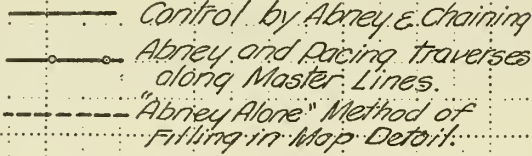 Control by Abney & Chaining
Abney and Pacing traverses
along Master Lines.
"Abney Alone" Method of
Filling in Map Detail.